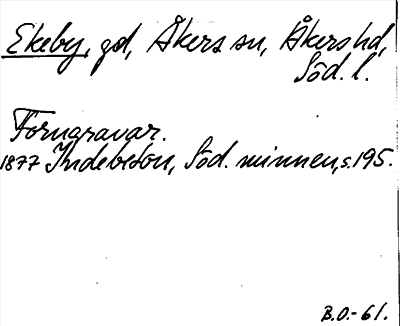 Ekeby, gd, Åkers sn, Åkers hd,
Söd. l.
Forngravar.
1877 Indebetou, Söd. minnen, s. 195.
B.O.-61.